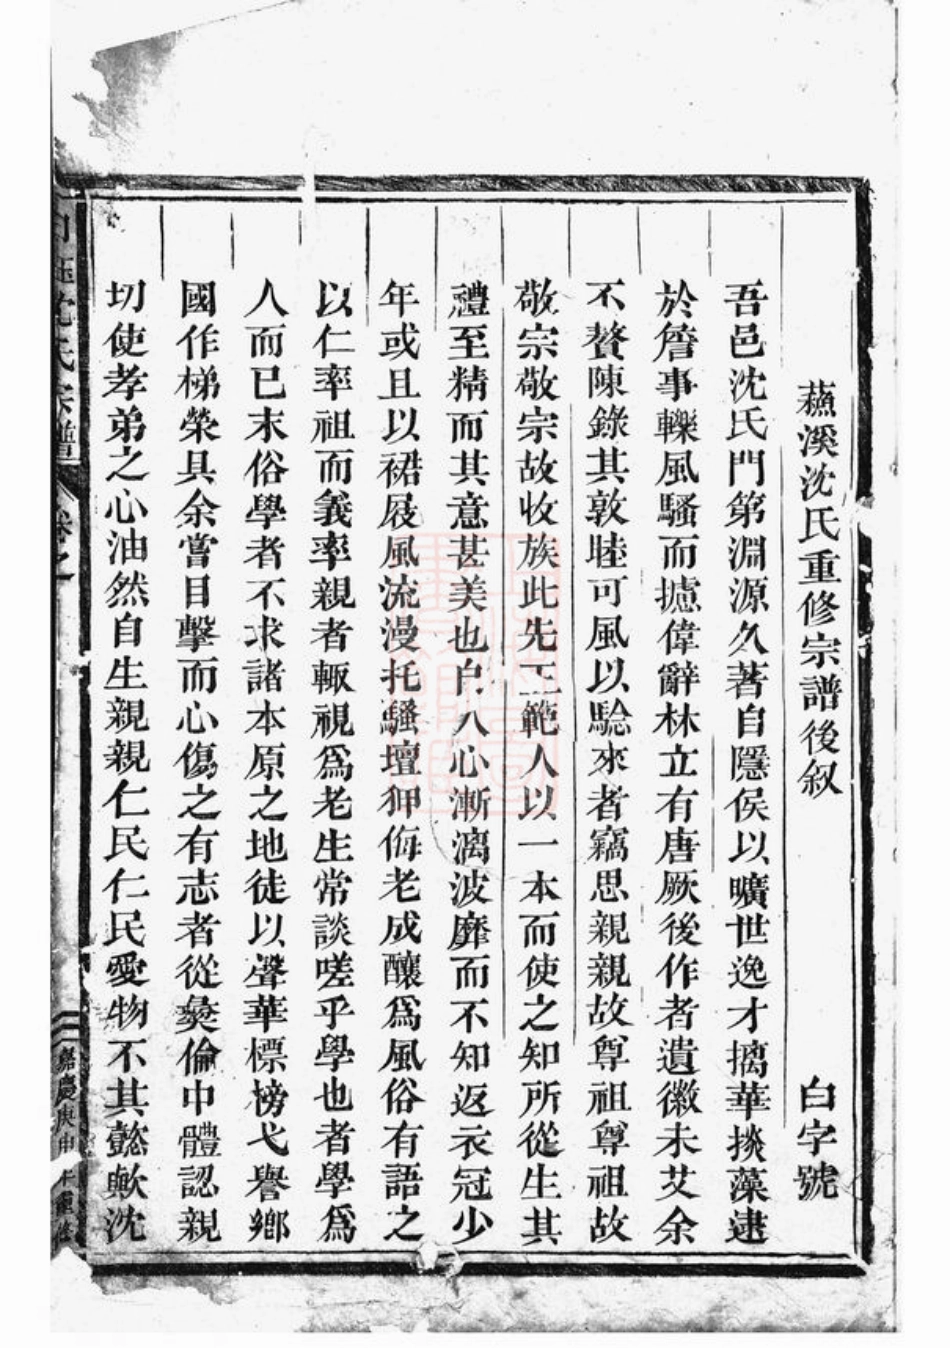 蘓溪沈氏重修宗譜後叙 白字號
吾邑沈氏門第淵源久著自隱侯以曠世逸才摛華掞藻逮
於詹事轢風騷而攄偉辭林立有唐厥後作者遺徽未艾余
不贅陳錄其敦睦可風以騐來者竊思親親故尊祖尊祖故
敬宗敬宗故收族此先王範人以一本而使之知所從生其
禮至精而其意甚美也自人心漸漓波靡而不知返衣冠少
年或且以裙屐風流漫托騷壇狎侮老成釀爲風俗有語之
以仁率祖而義率親者輙視爲老生常談嗟乎學也者學爲
人而已末俗學者不求諸本原之地徒以聲華標榜弋譽鄉
國作梯榮具余嘗目擊而心傷之有志者從彝倫中體認親
切使孝弟之心油然自生親親仁民仁民愛物不其懿歟沈
沈氏宗譜 卷之
嘉慶庚申年重修